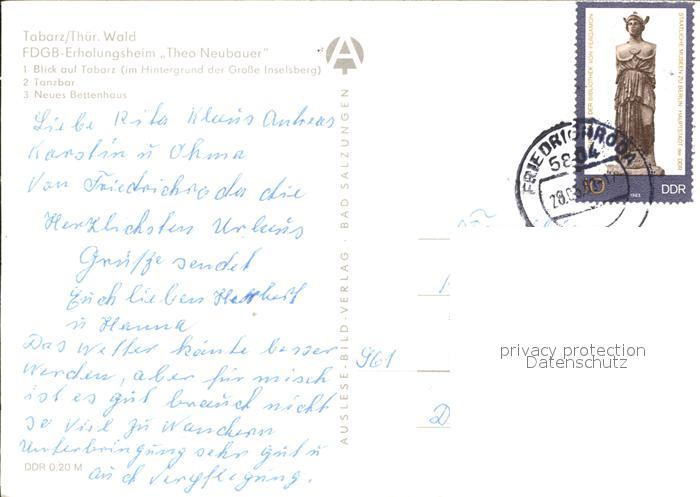 Tabarz/Thür. Wald
FDGB-Erholungsheim „Theo Neubauer"
1 Blick auf Tabarz (im Hintergrund der Große Inselsberg)
2 Tanzbar
3 Neues Bettenhaus
Liebe Rita Klaus Andreas
Karstin u Ohma
Von Friedrichroda die
Herzlichsten Urlaus
Grüße sendet
Euch lieben Herbert
u Hanna
Das Wetter könte besser
werden, aber für misch
ist es gut brauch nicht
so viel zu Wandern
Unterbringung sehr gut u
auch Verpflegung.
DDR 0,20 M
AUSLESE-BILD-VERLAG · BAD SALZUNGEN
DER BIBLIOTHEK VON PERGAMON
STAATLICHE MUSEEN ZU BERLIN HAUPTSTADT der DDR
10
1983
DDR
FRIEDRICHRODA
5804
961
D
privacy protection
Datenschutz